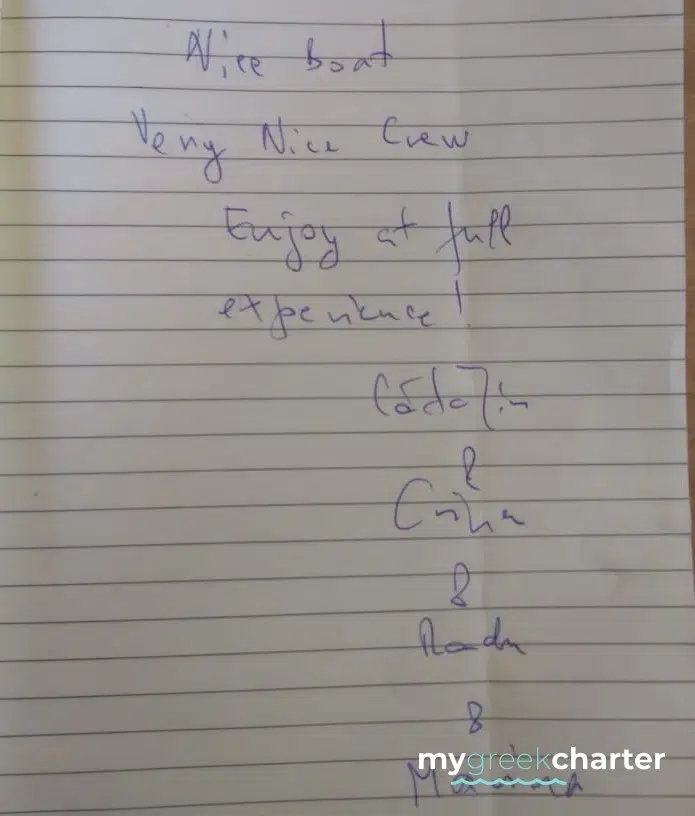 Nice Boat
Very Nice Crew
Enjoy at full
experience!
Cătălin
&
Crina
&
Radu
&
mygreekcharter